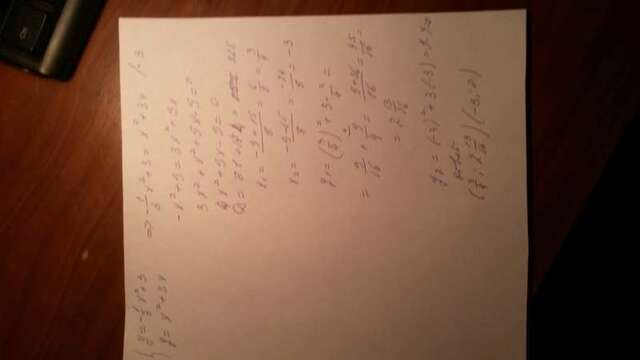 y = -1/3 x² + 3 ⇒ -1/3 x² + 3 = x² + 3x /·3
y = x² + 3x
-x² + 9 = 3x² + 9x
3x² + x² + 9x - 9 = 0
4x² + 9x - 9 = 0
225
x₁ = (-9+15)/8 = 6/8 = 3/4
x₂ = (-9-15)/8 = -24/8 = -3
y₁ = (3/4)² + 3·3/4 =
= 9/16 + 9/4 = (9+36)/16 = 45/16
= 2 13/16
y₂ = (-3)² + 3(-3) = 9-9=0
(3/4; 2 13/16) (-3; 0)